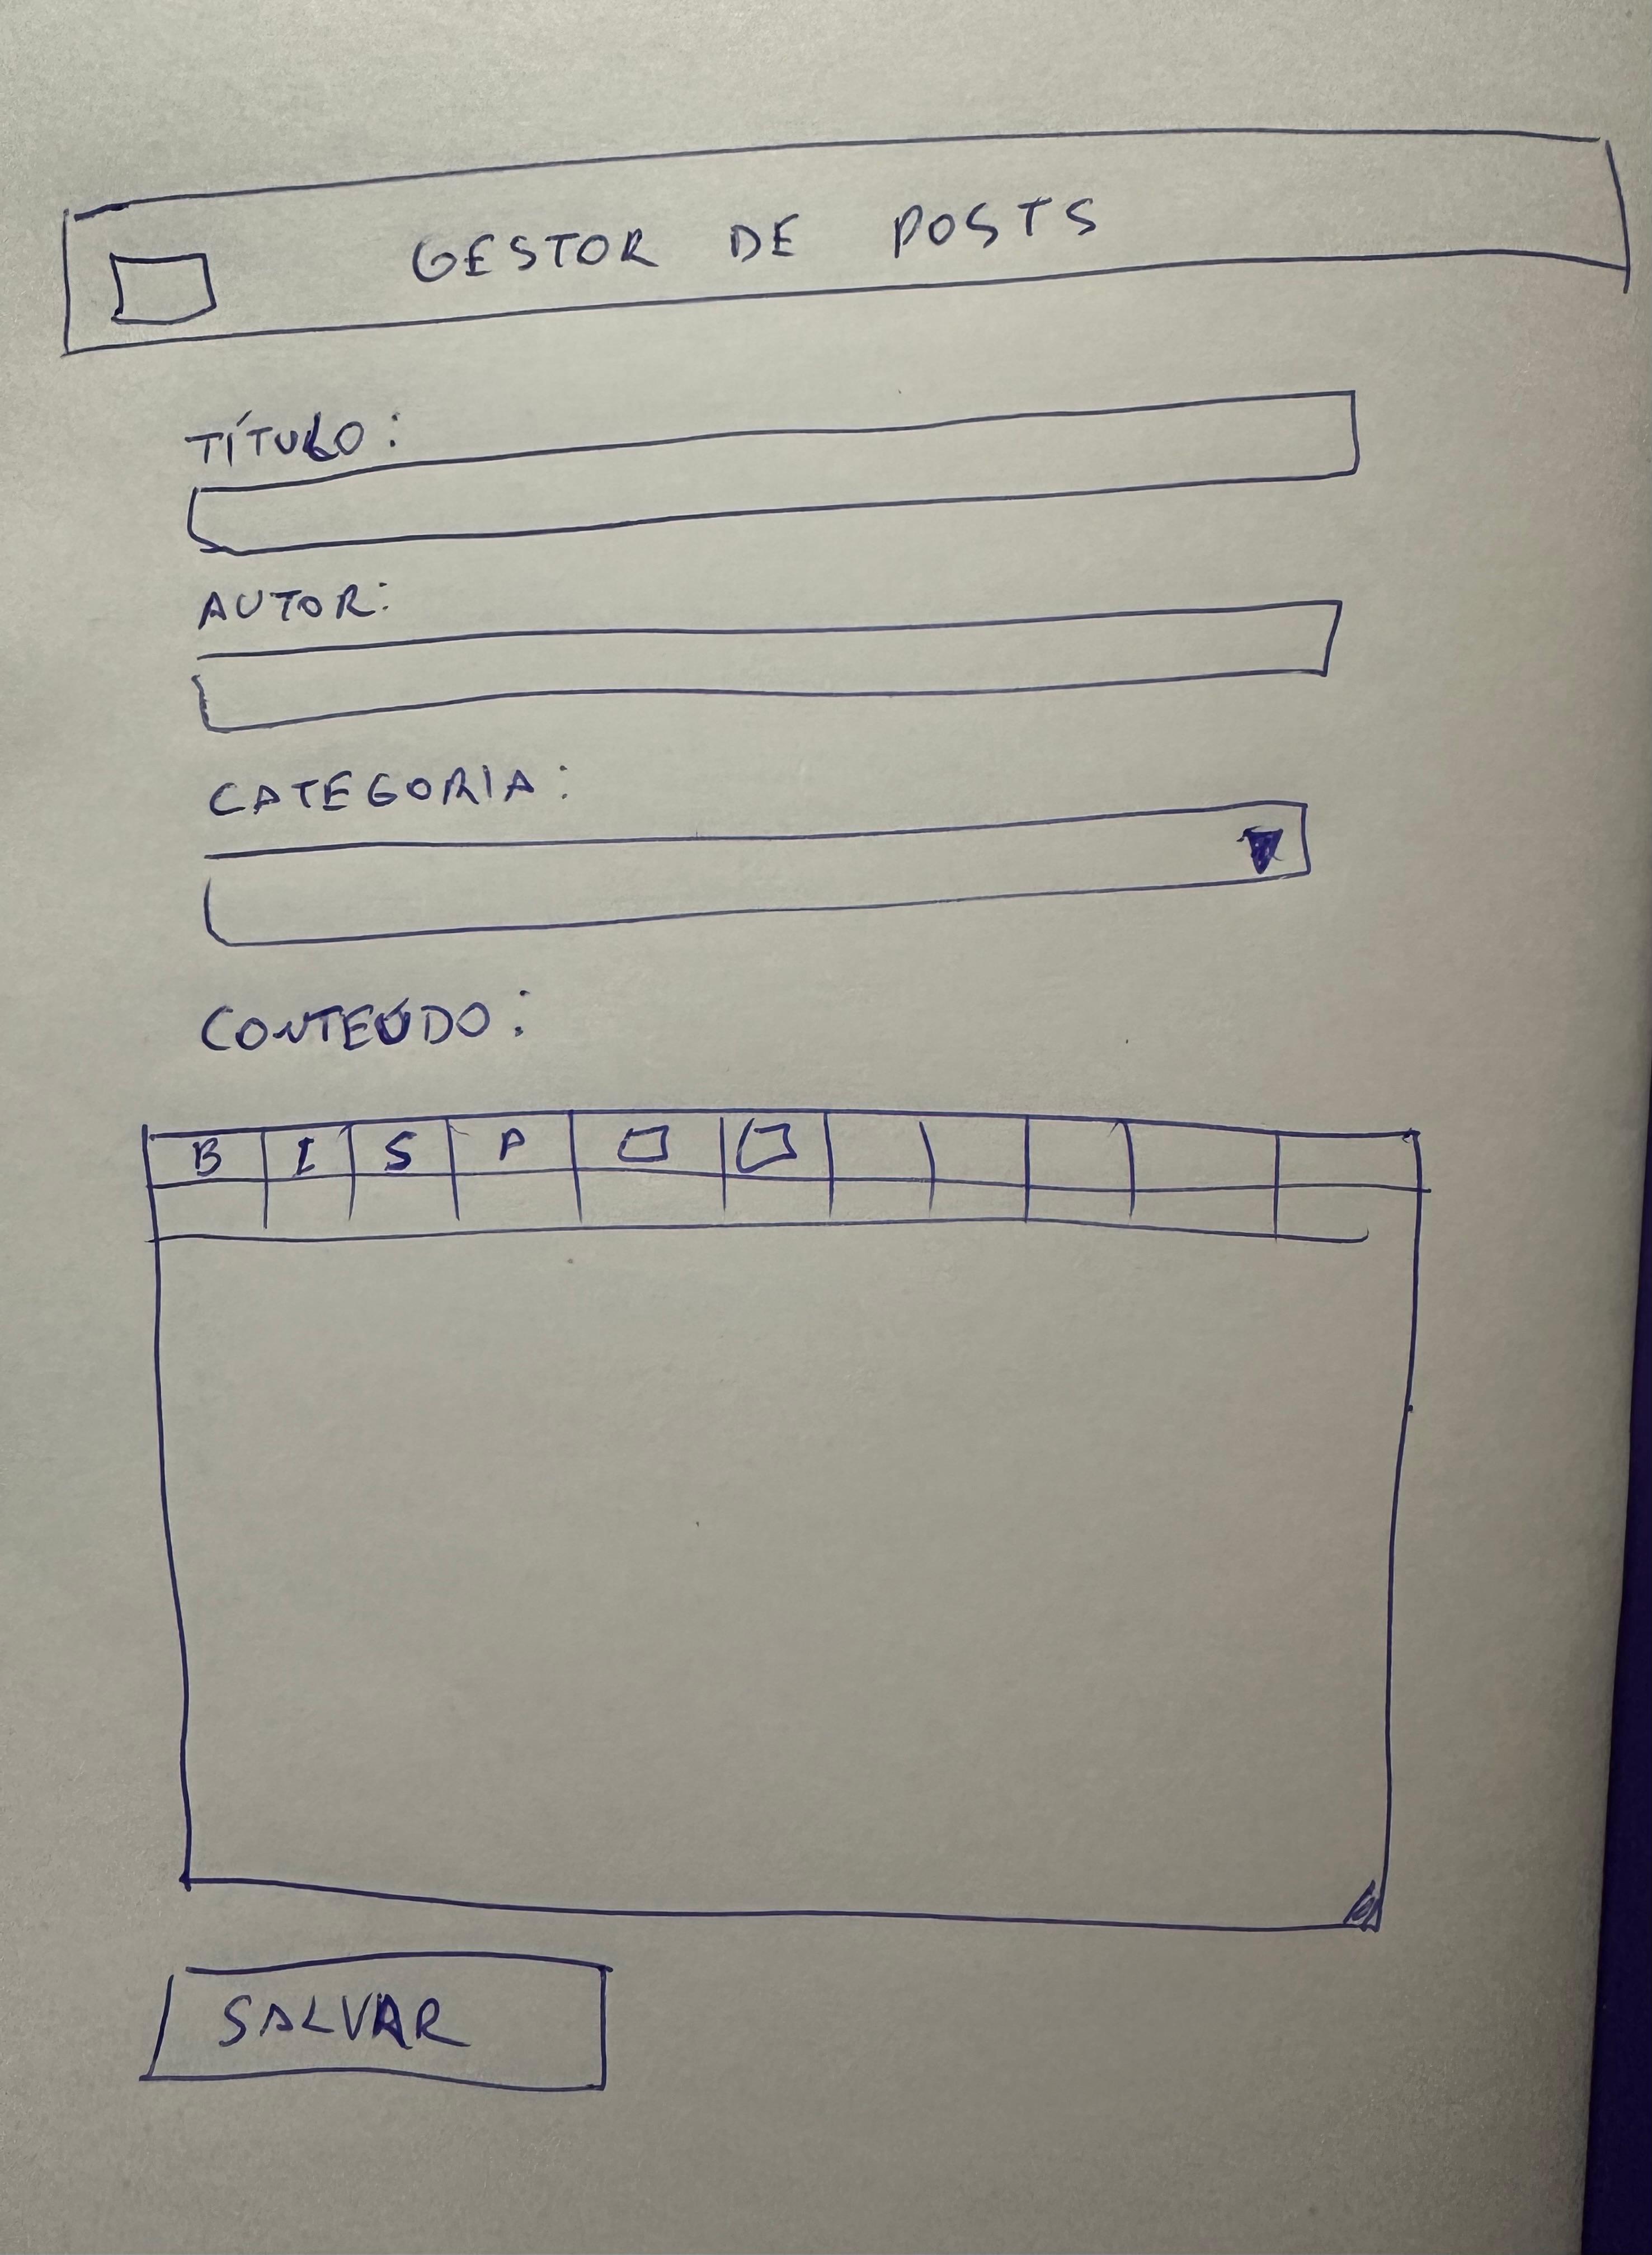 GESTOR DE POSTS
TÍTULO:
AUTOR:
CATEGORIA:
CONTEÚDO:
B I S P
SALVAR